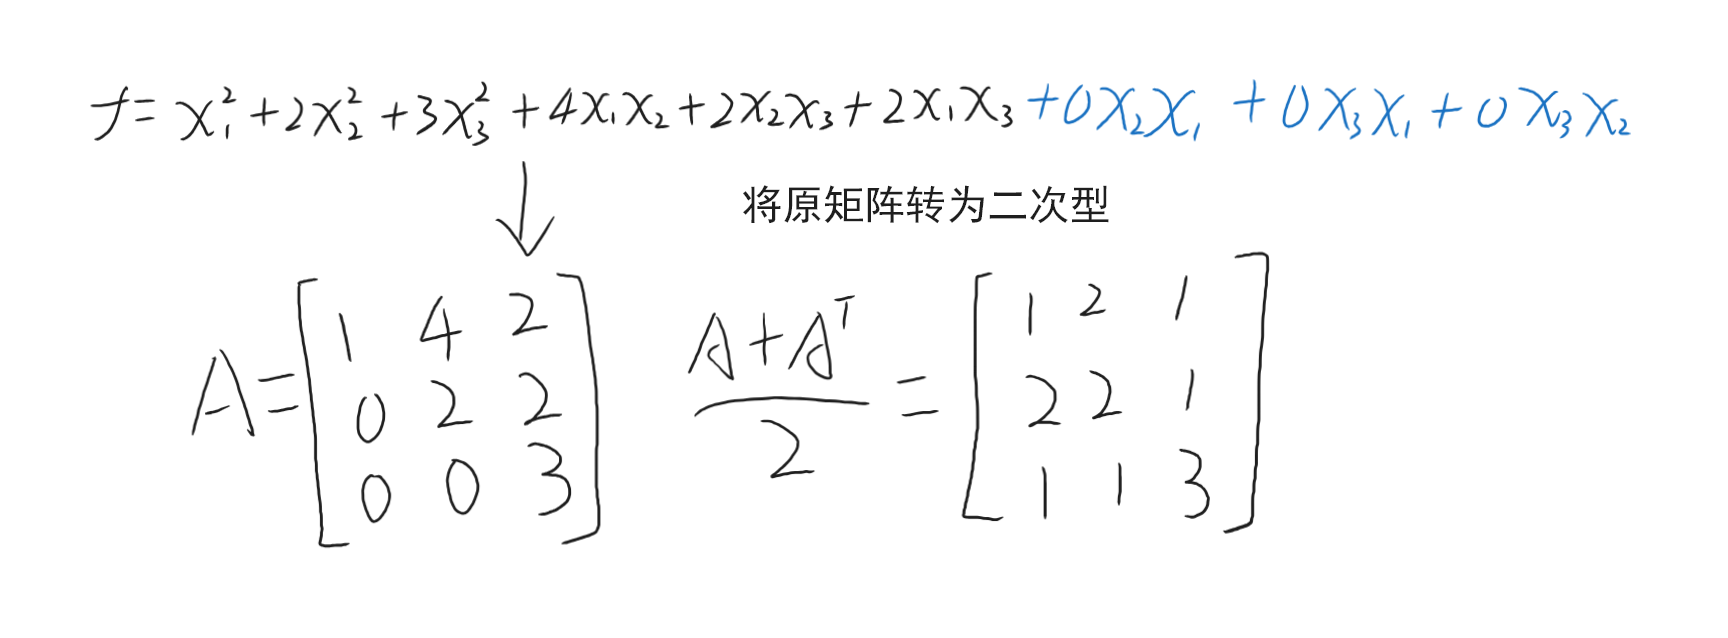 f = x₁² + 2x₂² + 3x₃² + 4x₁x₂ + 2x₂x₃ + 2x₁x₃ + 0x₂x₁ + 0x₃x₁ + 0x₃x₂
将原矩阵转为二次型
A = [1 4 2; 0 2 2; 0 0 3] (A+Aᵀ)/2 = [1 2 1; 2 2 1; 1 1 3]